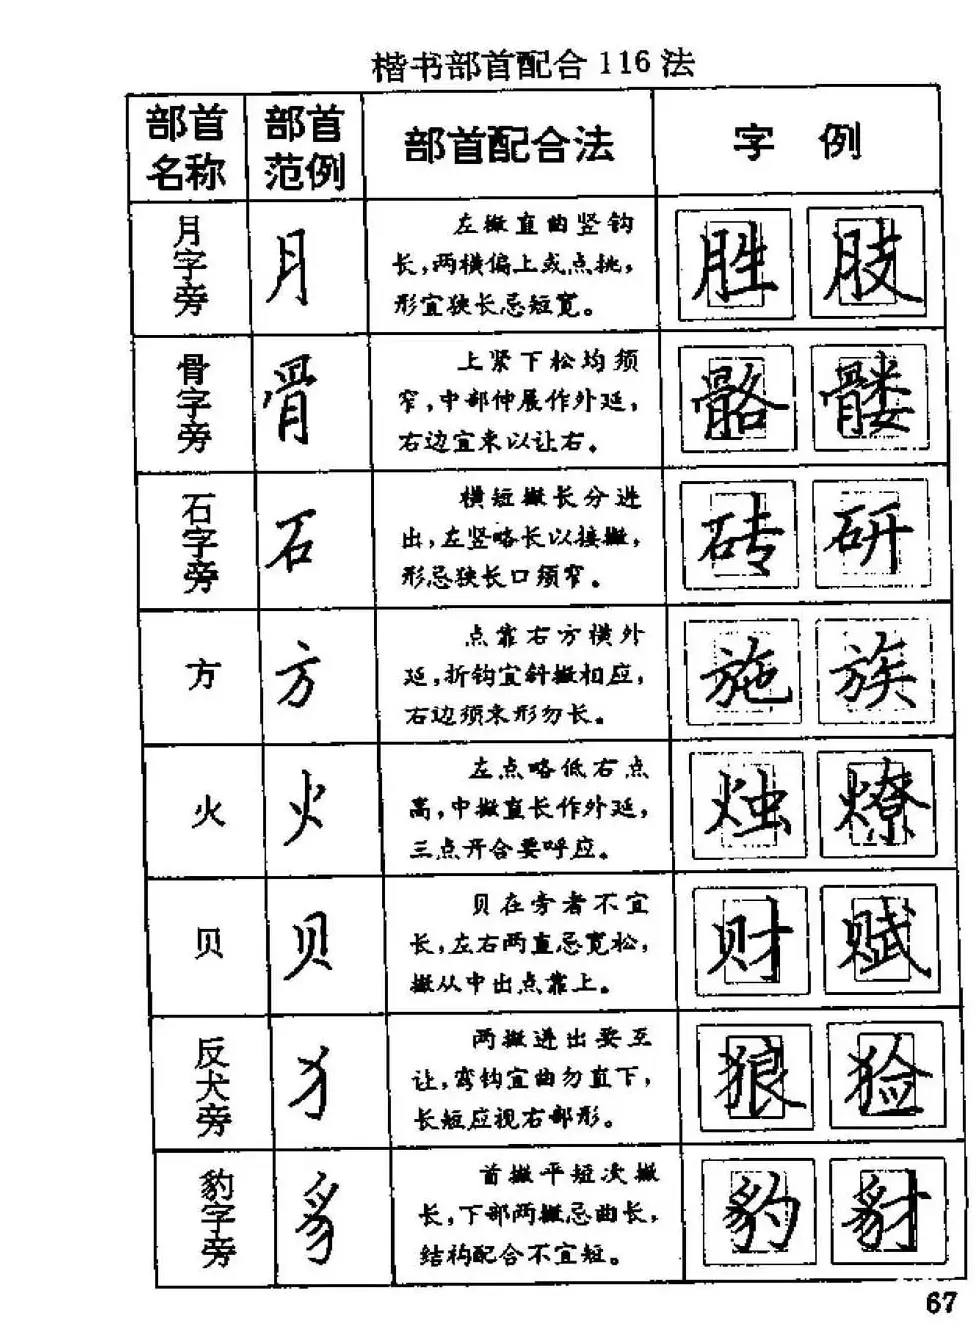 楷书部首配合116法
部首名称 部首范例 部首配合法 字例
月字旁 月 左撇直曲竖钩 胜 肢
长,两横偏上或点挑,
形宜狭长忌短宽。
骨字旁 骨 上紧下松均须 骼 髅
窄,中部伸展作外延,
右边宜束以让右。
石字旁 石 横短撇长分进 砖 研
出,左竖略长以接撇,
形忌狭长口须窄。
方 方 点靠右方横外 施 族
延,折钩宜斜撇相应,
右边须束形勿长。
火 火 左点略低右点 烛 燎
高,中撇直长作外延,
三点开合要呼应。
贝 贝 贝在旁者不宜 财 赋
长,左右两直忌宽松,
撇从中出点靠上。
反犬旁 犭 两撇进出要至 狼 猃
让,弯钩宜曲勿直下,
长短应视右部形。
豹字旁 豸 首撇平短次撇 豹 豺
长,下部两撇忌曲长,
结构配合不宜短。
67